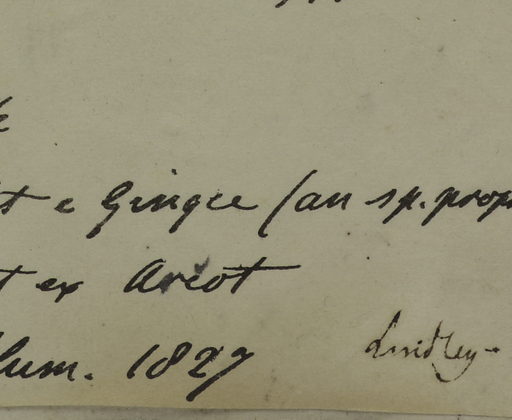 t e Gingee (an sp. prop
t ex Arcot
lum. 1827
Lindley-